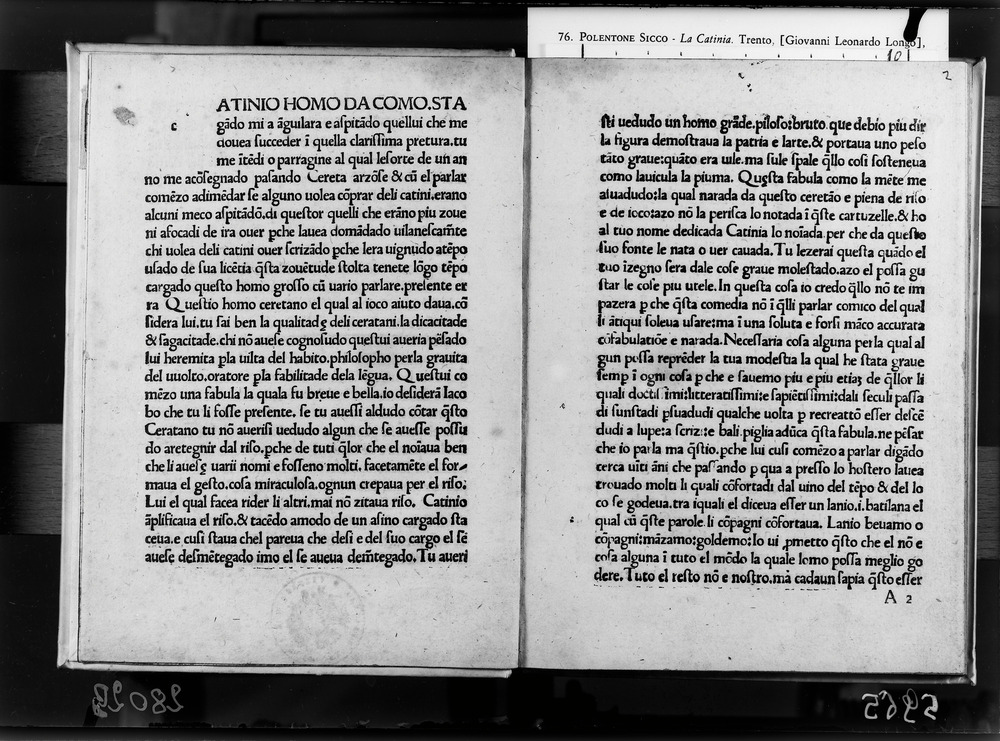 76. POLENTONE SICCO - La Catinia. Trento, [Giovanni Leonardo Longo],
10
2
ATINIO HOMO DA COMO.STA
c gãdo mi a ãguilara e aſpitãdo quellui che me
douea ſucceder ĩ quella clariſſima pretura.tu
me ĩtẽdi o parragine al qual leſorte de un an
no me acõſegnado paſando Cereta arzõſe & cũ el parlar
comẽzo adimẽdar ſe alguno uolea cõprar deli catini.erano
alcuni meco aſpitãdõ.di queſtor quelli che erãno piu zoue
ni afocadi de ira ouer ꝑche lauea domãdado uilaneſcamẽte
chi uolea deli catini ouer ſcrizãdo ꝑche lera uignudo atẽpo
uſado de ſua licẽtia q̃ſta zouẽtude ſtolta tenete lõgo tẽpo
cargado queſto homo groſſo cũ uario parlare.preſente er
ra Queſtio homo ceretano el qual al ioco aiuto daua.cõ
ſidera lui.tu ſai ben la qualitadȩ deli ceratani.la dicacitade
& ſagacitade.chi nõ aueſe cognoſudo queſtui aueria pẽſado
lui heremita ꝑla uilta del habito.philoſopho perla grauita
del uuolto.oratore ꝑla fabilitade dela lẽgua. Queſtui co
mẽzo una fabula la quala fu breue e bella.io deſiderã Iaco
bo che tu li foſſe preſente. ſe tu aueſſi aldudo cõtar q̃ſto
Ceratano tu nõ aueriſi ueduto algun che ſe aueſſe poſſu
do aretegnir dal riſo.ꝑche de tuti q̃lor che el noĩaua ben
che li aueſȩ uarii nomi e foſſeno molti. facetamẽte el for-
maua el geſto.coſa miraculoſa.ognun crepaua per el riſo:
Lui el qual facea rider li altri.mai nõ zitaua riſo. Catinio
ãplificaua el riſo.& tacẽdo amodo de un aſino cargado ſta
ceua.e cuſi ſtaua chel pareua che deſi e del ſuo cargo el ſẽ
aueſe deſmẽtegado imo el ſe aueua dem̃tegado.Tu aueri
ſti uedudo un homo grãde.piloſo:bruto que debio piu dir
la figura demoſtraua la patria e larte.& portaua uno peſo
tãto graue:quãto era uile.ma ſule ſpale q̃llo coſi ſoſteneua
como lauicula la piuma. Queſta fabula como la mẽte me
aſuadudo:la qual narada da queſto ceretão e piena de riſo
e de iocco:azo nõ la periſca lo notada ĩ q̃ſte cartuzelle.& ho
al tuo nome dedicada Catinia lo noĩada per che da queſto
ſuo fonte le nata o uer cauada.Tu lezerai queſta quãdo el
tuo ĩzegno ſera dale coſe graue moleſtado.azo el poſſa gu
ſtar le coſe piu utele.In queſta coſa io credo q̃llo nõ te im
pazera ꝑ che q̃ſta comedia nõ ĩ q̃lli parlar comico del qual
li ãtiqui ſoleua uſare:ma ĩ una ſoluta e forſi mãco accurata
cõfabulatiõe e narada.Neceſſaria coſa alguna per la qual al
gun poſſa reprẽder la tua modeſtia la qual he ſtata graue
ſemp ĩ ogni coſa ꝑ che e ſauemo piu e piu etiaȝ de q̃llor li
quali doctiſſimi:litteratiſſimi:e ſapiẽtiſſimi:dali ſeculi paſſa
di ſunſtadi ꝑſuadudi qualche uolta ꝑ recreattõ eſſer deſcẽ
dudi a lupe:a ſcriz:e bali.piglia adũca q̃ſta fabula.ne pẽſar
che io parla ma q̃ſtio.ꝑche lui cuſi comẽzo a parlar digãdo
cerca uĩti ãni che paſando ꝑ qua a preſſo lo hoſtero lauea
trouado molti li quali cõfortadi dal uino del tẽpo & del lo
co ſe godeua.tra iquali el diceua eſſer un lanio.i.batilana el
qual cũ q̃ſte parole li cõpagni cõfortaua. Lanio beuamo o
cõpagni:mãzamo:goldemo:Io ui ꝓmetto q̃ſto che el nõ e
coſa alguna ĩ tuto el mõdo la quale lomo poſſa meglio go
dere.Tuto el reſto nõ e noſtro.mà cadaun ſapia q̃ſto eſſer
A 2
28029
5965